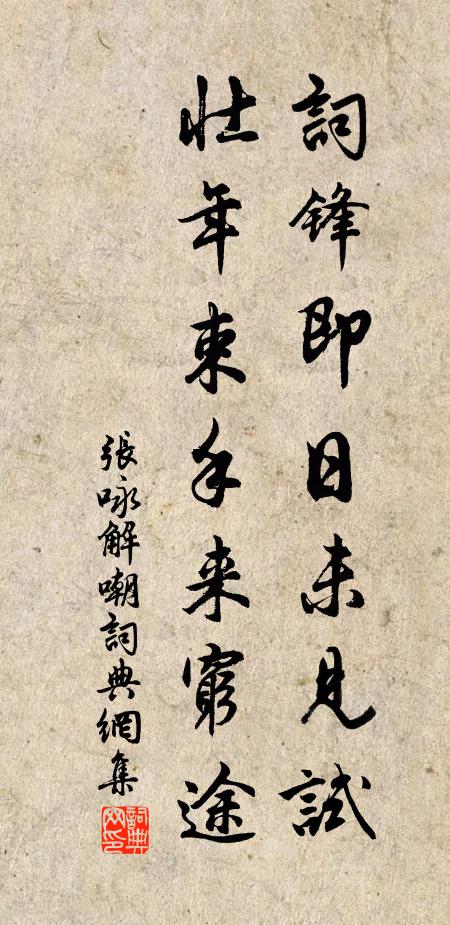 詞鋒即日未見試
壯年束手来窮途
張咏解嘲詞典網集
詞典
网印